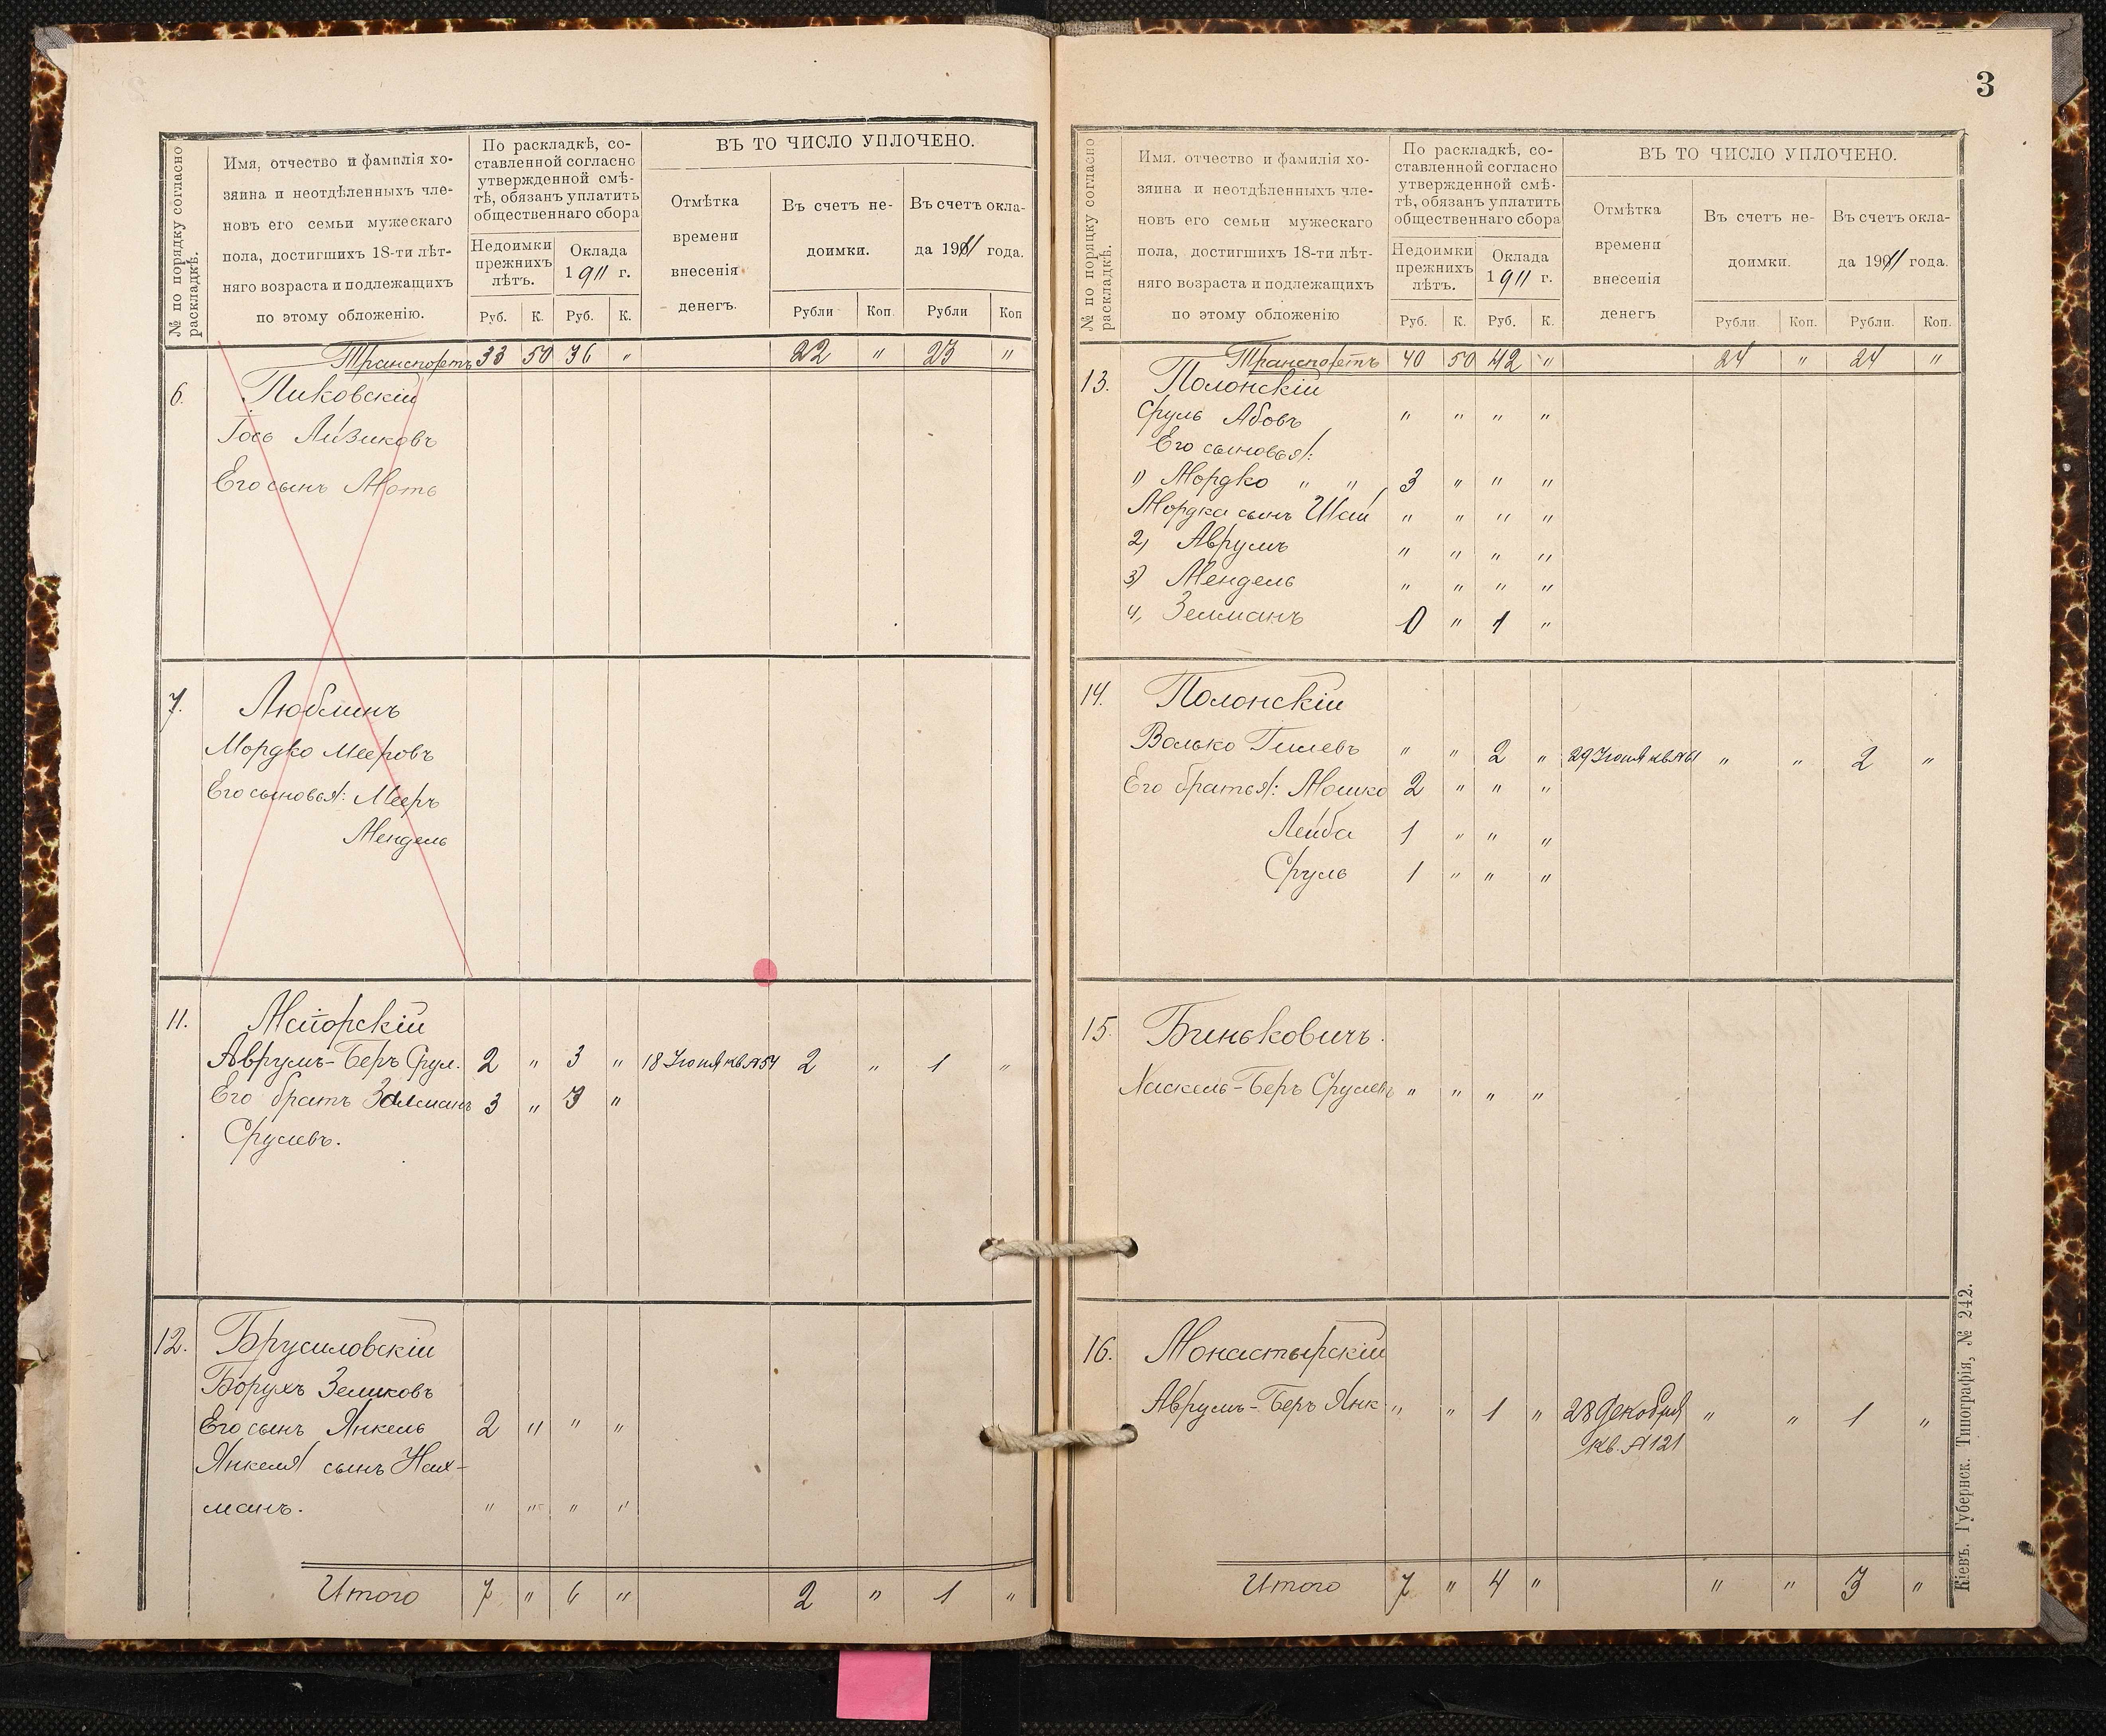 № по порядку согласно раскладкѣ.
Имя, отчество и фамилія хо-
зяина и неотдѣленныхъ чле-
новъ его семьи мужескаго
пола, достигшихъ 18-ти лѣт-
няго возраста и подлежащихъ
по этому обложенію.
По раскладкѣ, со-
ставленной согласно
утвержденной смѣ-
тѣ, обязанъ уплатить
общественнаго сбора
Недоимки
прежнихъ
лѣтъ.
Оклада
1911 г.
Руб. К. Руб. К.
ВЪ ТО ЧИСЛО УПЛОЧЕНО.
Отмѣтка
времени
внесенія
денегъ.
Въ счетъ не-
доимки.
Въ счетъ окла-
да 1911 года.
Рубли Коп. Рубли Коп
Транспортъ 33 50 36 " 22 " 23 "
6. Пиковскій
Гось Айзиковъ
Его сынъ Моть
7. Люблинъ
Мордко Мееровъ
Его сыновья: Мееръ
Мендель
11. Майорскій
Аврумъ-Беръ Срул. 2 " 3 " 18 Іюня кв №54 2 " 1 "
Его братъ Залманъ 3 " 3 "
Срулевъ.
12. Брусиловскій
Борухъ Зеликовъ
Его сынъ Янкель 2 " " "
Янкеля сынъ Нах-
манъ. " " " "
Итого 7 " 6 " 2 " 1 "
3
№ по порядку согласно раскладкѣ.
Имя, отчество и фамилія хо-
зяина и неотдѣленныхъ чле-
новъ его семьи мужескаго
пола, достигшихъ 18-ти лѣт-
няго возраста и подлежащихъ
по этому обложенію
По раскладкѣ, со-
ставленной согласно
утвержденной смѣ-
тѣ, обязанъ уплатить
общественнаго сбора
Недоимки
прежнихъ
лѣтъ.
Оклада
1911 г.
Руб. К. Руб. К.
ВЪ ТО ЧИСЛО УПЛОЧЕНО.
Отмѣтка
времени
внесенія
денегъ
Въ счетъ не-
доимки.
Въ счетъ окла-
да 1911 года.
Рубли. Коп. Рубли. Коп.
Транспортъ 40 50 42 " 24 " 24 "
13. Полонскій
Сруль Абовъ " " " "
Его сыновья:
1) Мордко " " 3 " " "
Мордка сынъ Шай " " " "
2) Аврумъ " " " "
3) Мендель " " " "
4, Зелманъ 0 " 1 "
14. Полонскій
Волько Гилевъ " " 2 " 29 Іюня кв №61 " " 2 "
Его братья: Мошко 2 " " "
Лейба 1 " " "
Сруль 1 " " "
15. Биньковичъ.
Хаскель-Беръ Срулевъ " " " "
16. Монастырскій
Аврумъ-Беръ Янк " " 1 " 28 Декабря " " 1 "
кв. №121
Итого 7 " 4 " " " 3 "
Кіевъ. Губернск. Типографія, № 242.